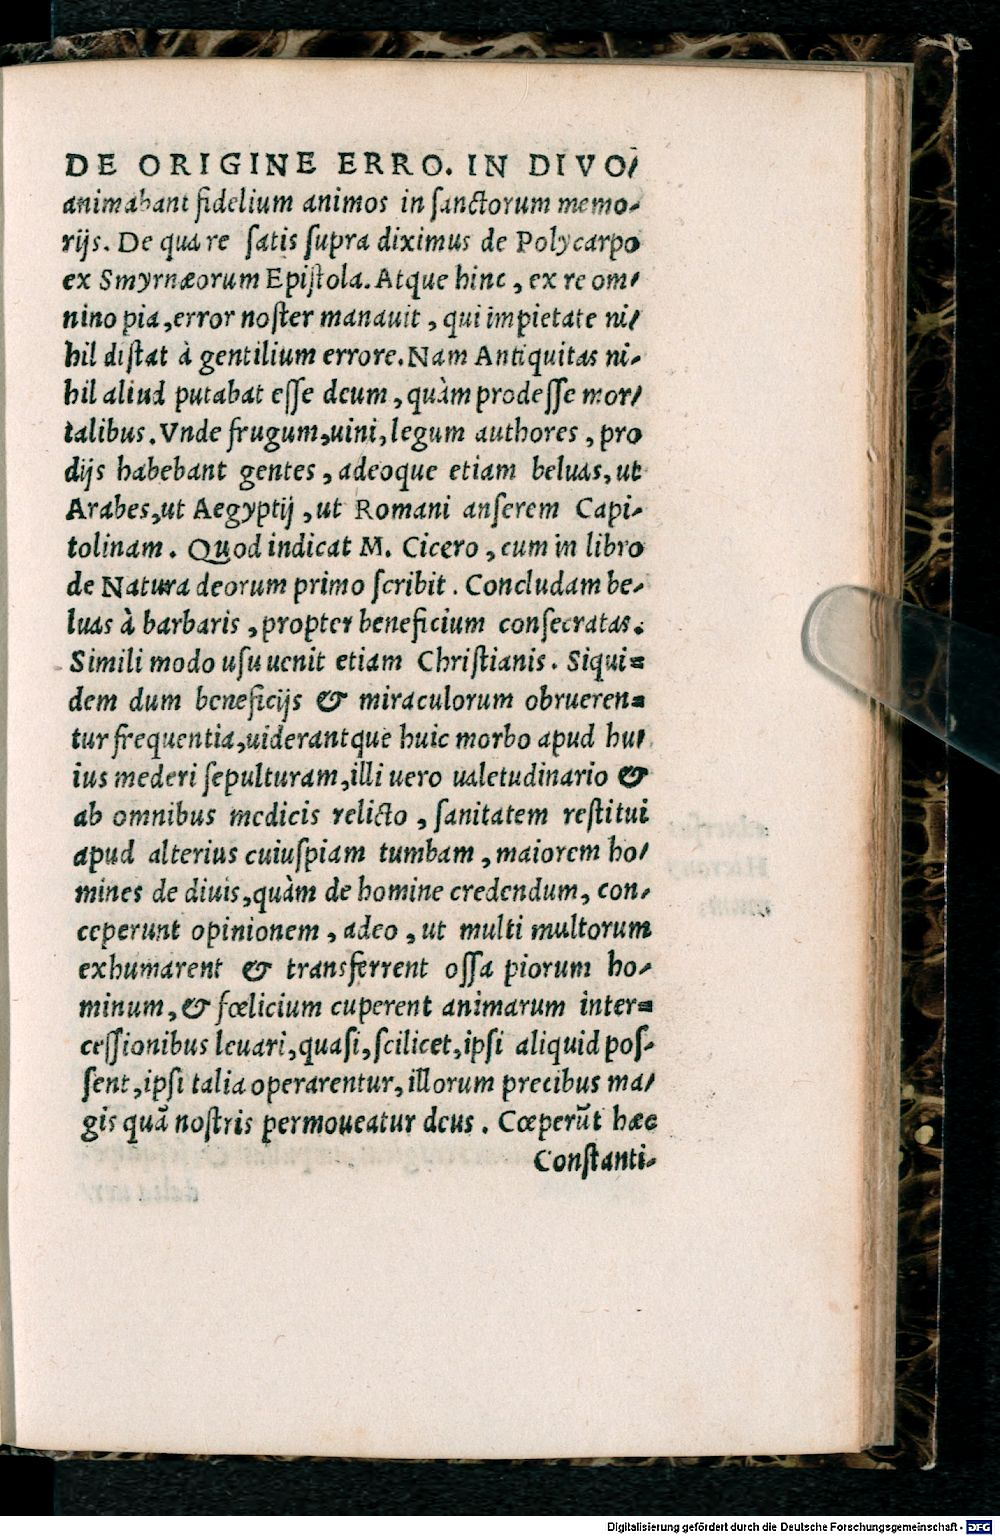 DE ORIGINE ERRO. IN DIVO/
animabant fidelium animos in ſanctorum memo-
rijs. De qua re ſatis ſupra diximus de Polycarpo
ex Smyrnæorum Epiſtola. Atque hinc, ex re om/
nino pia, error noſter manauit, qui impietate ni/
hil diſtat à gentilium errore. Nam Antiquitas ni-
hil aliud putabat eſſe deum, quàm prodeſſe mor/
talibus. Vnde frugum, uini, legum authores, pro
dijs habebant gentes, adeoque etiam beluas, ut
Arabes, ut Aegyptij, ut Romani anſerem Capi-
tolinam. Quod indicat M. Cicero, cum in libro
de Natura deorum primo ſcribit. Concludam be-
luas à barbaris, propter beneficium conſecratas.
Simili modo uſu uenit etiam Chriſtianis. Siqui=
dem dum beneficijs & miraculorum obrueren=
tur frequentia, uiderantque huic morbo apud hu/
ius mederi ſepulturam, illi uero ualetudinario &
ab omnibus medicis relicto, ſanitatem reſtitui
apud alterius cuiuſpiam tumbam, maiorem ho/
mines de diuis, quàm de homine credendum, con-
ceperunt opinionem, adeo, ut multi multorum
exhumarent & transferrent oſſa piorum ho-
minum, & fœlicium cuperent animarum inter=
ceſſionibus leuari, quaſi, ſcilicet, ipſi aliquid poſ-
ſent, ipſi talia operarentur, illorum precibus ma/
gis quã noſtris permoueatur deus. Cœperũt hæc
Conſtanti-
Digitalisierung gefördert durch die Deutsche Forschungsgemeinschaft - DFG